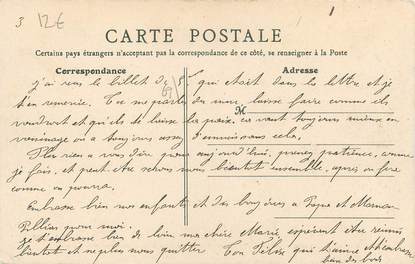 3 12€
CARTE POSTALE
Certains pays étrangers n'acceptant pas la correspondance de ce côté, se renseigner à la Poste
Correspondance Adresse
j'ai reçu le billet de 5f qui était dans ta lettre et je
t'en remercie. Tu me parles des laisse faire comme ils
voudront et qu'ils te laisse la paix, ça vaut toujours mieux en
voisinage on a toujours assez d'ennuis sans cela.
M
Plus rien a vous dire pour aujourd'hui, prenez patience, comme
je fais, et peut être serons nous bientôt ensemble, après on fera
comme on pourra.
Embrasse bien nos enfants et des bonjours à Papa et Maman
Pellier pour moi.
je t'embrasse bien de loin ma chère Marie, espérant être réunis
bientôt et ne plus nous quitter Ton Félix qui t'aime et t'embrasse
bien des fois